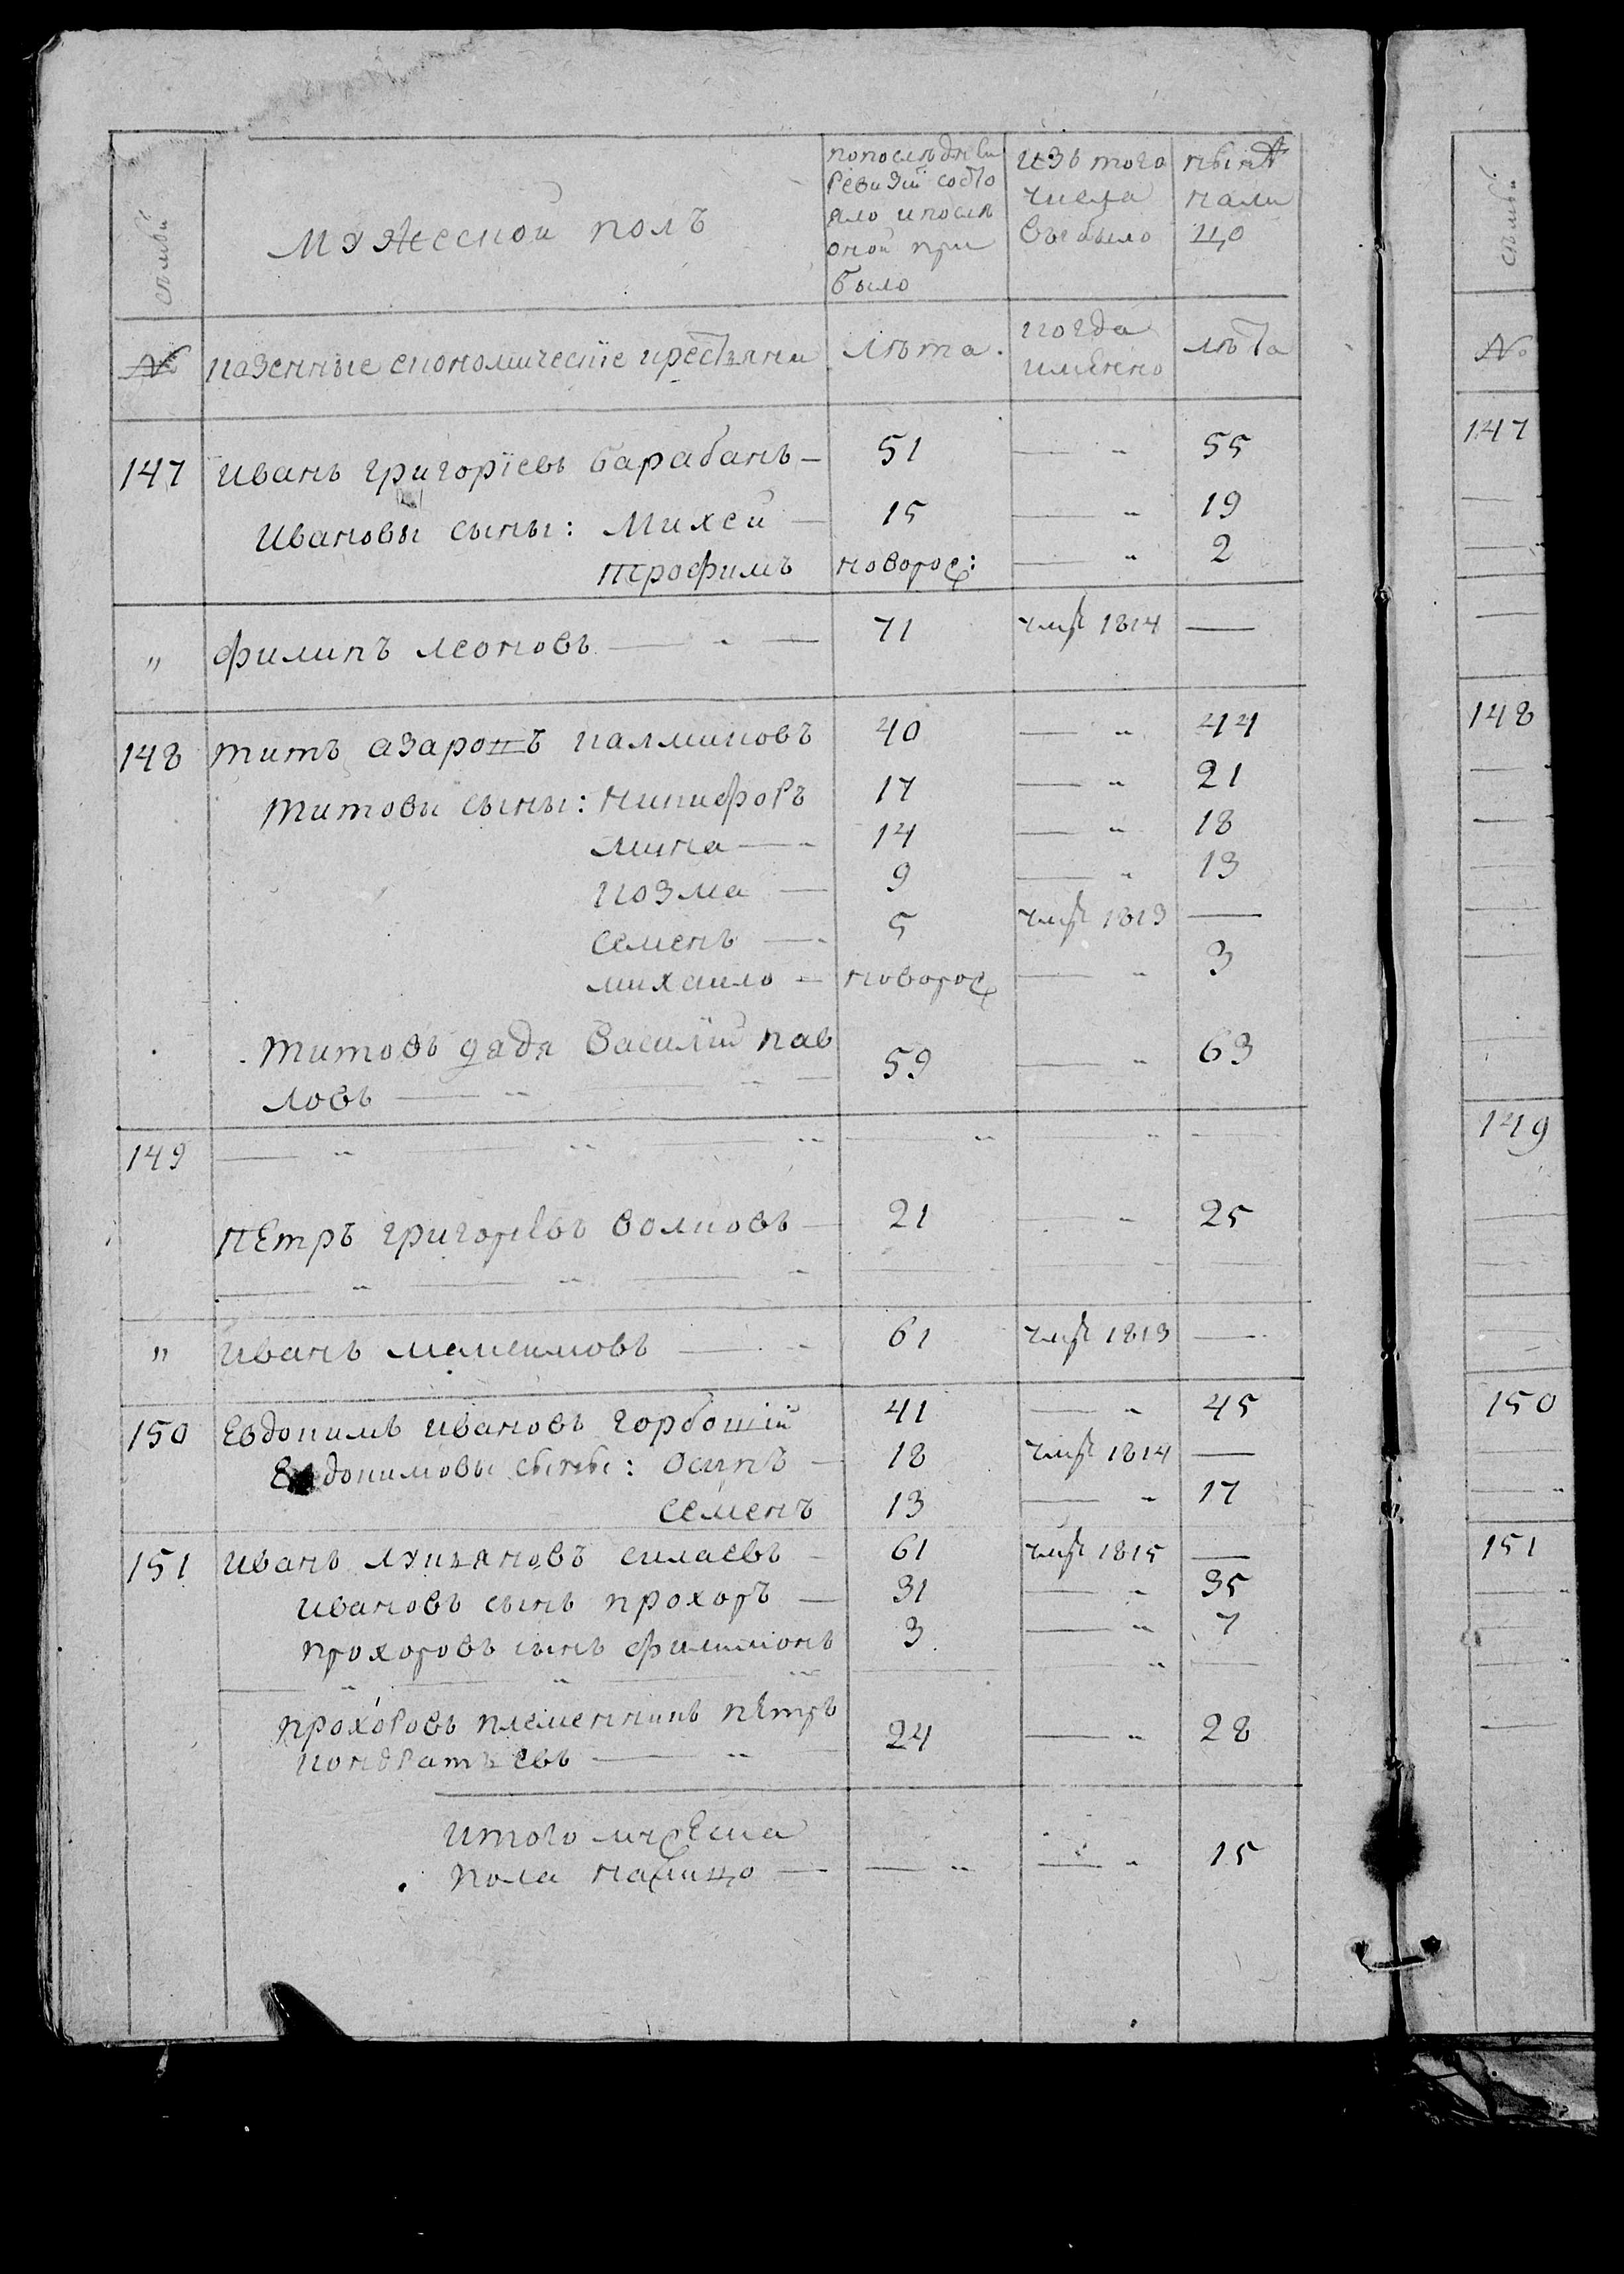 семьи
мужеской полъ
попоследнеи
ревизии состо
яло ипосле
оной при
было
изъ того
числа
выбыло
ныне
нали
цо
семьи
№ казенные економическïе крестьяня лѣта. когда именно лѣта
№
147 иванъ григорïевъ барабанъ — 51 — „ 55
147
ивановы сыны: Михей — 15 — „ 19
трофимъ новорож: — „ 2
„ филипъ леоновъ — „ — 71 умре 1814 —
148 титъ азаровъ калмыковъ 40 — „ 44
148
титовы сыны: никифоръ 17 — „ 21
мина — „ 14 — „ 18
козма — 9 — „ 13
семенъ — „ 5 умре 1813 —
михаило — новорож — „ 3
титовъ дядя василïй пав
ловъ — „ — „ — 59 — „ 63
149 — „ — „ — „ — „ — „ —
149
пЕтръ григорьевъ волковъ — 21 — „ 25
— „ — „ — „ — — „ —
„ иванъ максимовъ — „ 61 умре 1813 —
150 Евдокимъ ивановъ горбошïй 41 — „ 45
150
Евдокимовы сыны: осипъ — 18 умре 1814 —
семенъ 13 — „ 17
151 иванъ лукьяновъ силаевъ — 61 умре 1815 —
151
ивановъ сынъ прохоръ — 31 — „ 35
прохоровъ сынъ филимонъ 3 — „ 7
— „ — „ — „ — — „ —
прохоровъ племенникъ пЕтръ
кондратьевъ — „ — 24 — „ 28
итого мужеска
пола налицо — — „ — „ 15